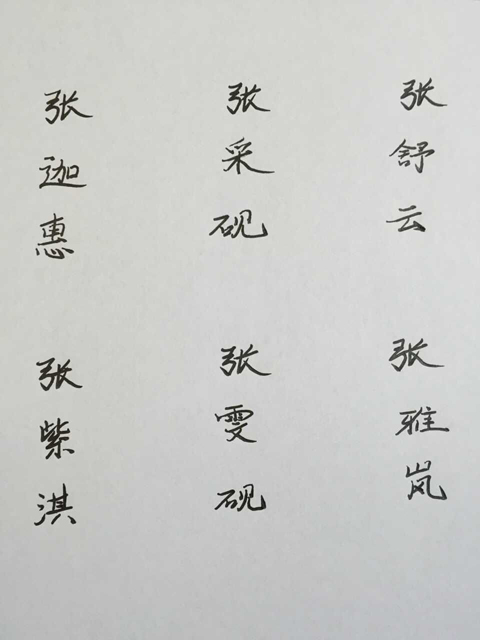 张舒云
张采砚
张迦惠
张雅岚
张雯砚
张紫淇